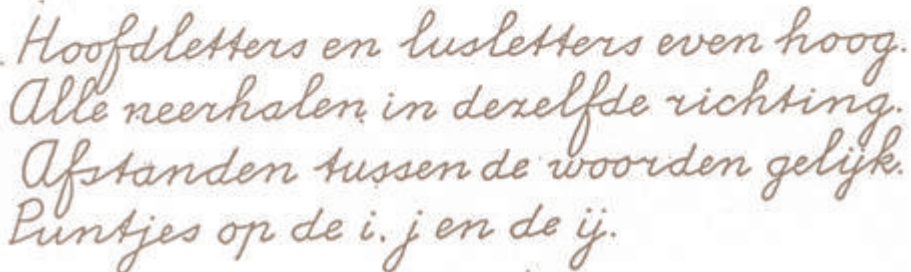 Hoofdletters en lusletters even hoog.
Alle neerhalen in dezelfde richting.
Afstanden tussen de woorden gelijk.
Puntjes op de i. j en de ij.